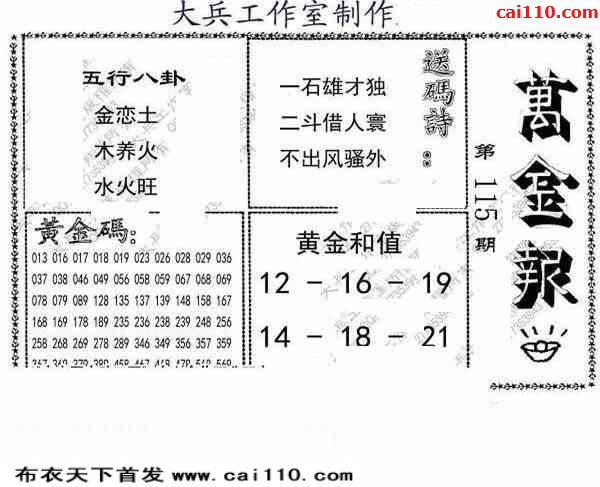 大兵工作室制作
cai110.com
五行八卦
金恋土
木养火
水火旺
送碼詩：
一石雄才独
二斗借人寰
不出风骚外
萬金報
第115期
黄金碼：
013 016 017 018 019 023 026 028 029 036
037 038 046 049 056 058 059 067 068 069
078 079 089 128 135 137 139 148 158 167
168 169 178 235 236 238 239 248 256
258 268 289 346 349 356 357 359
黄金和值
12 － 16 － 19
14 － 18 － 21
布衣天下首发 www.cai110.com